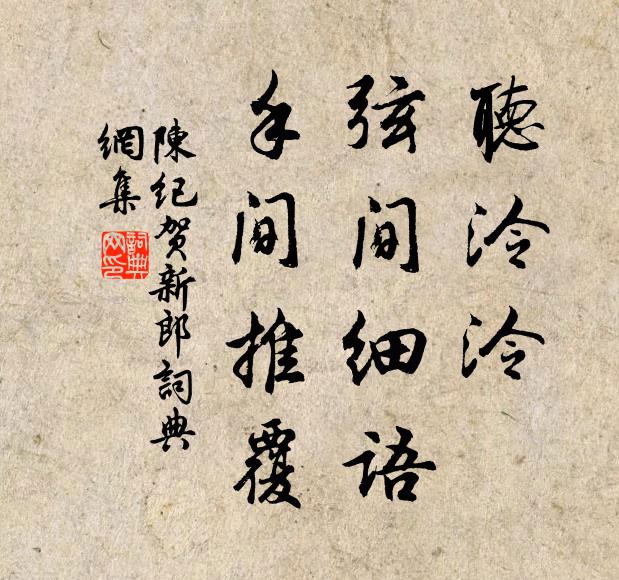 聽泠泠
弦間細語
手間推覆
陳紀賀新郎詞典
網集
詞典
网印